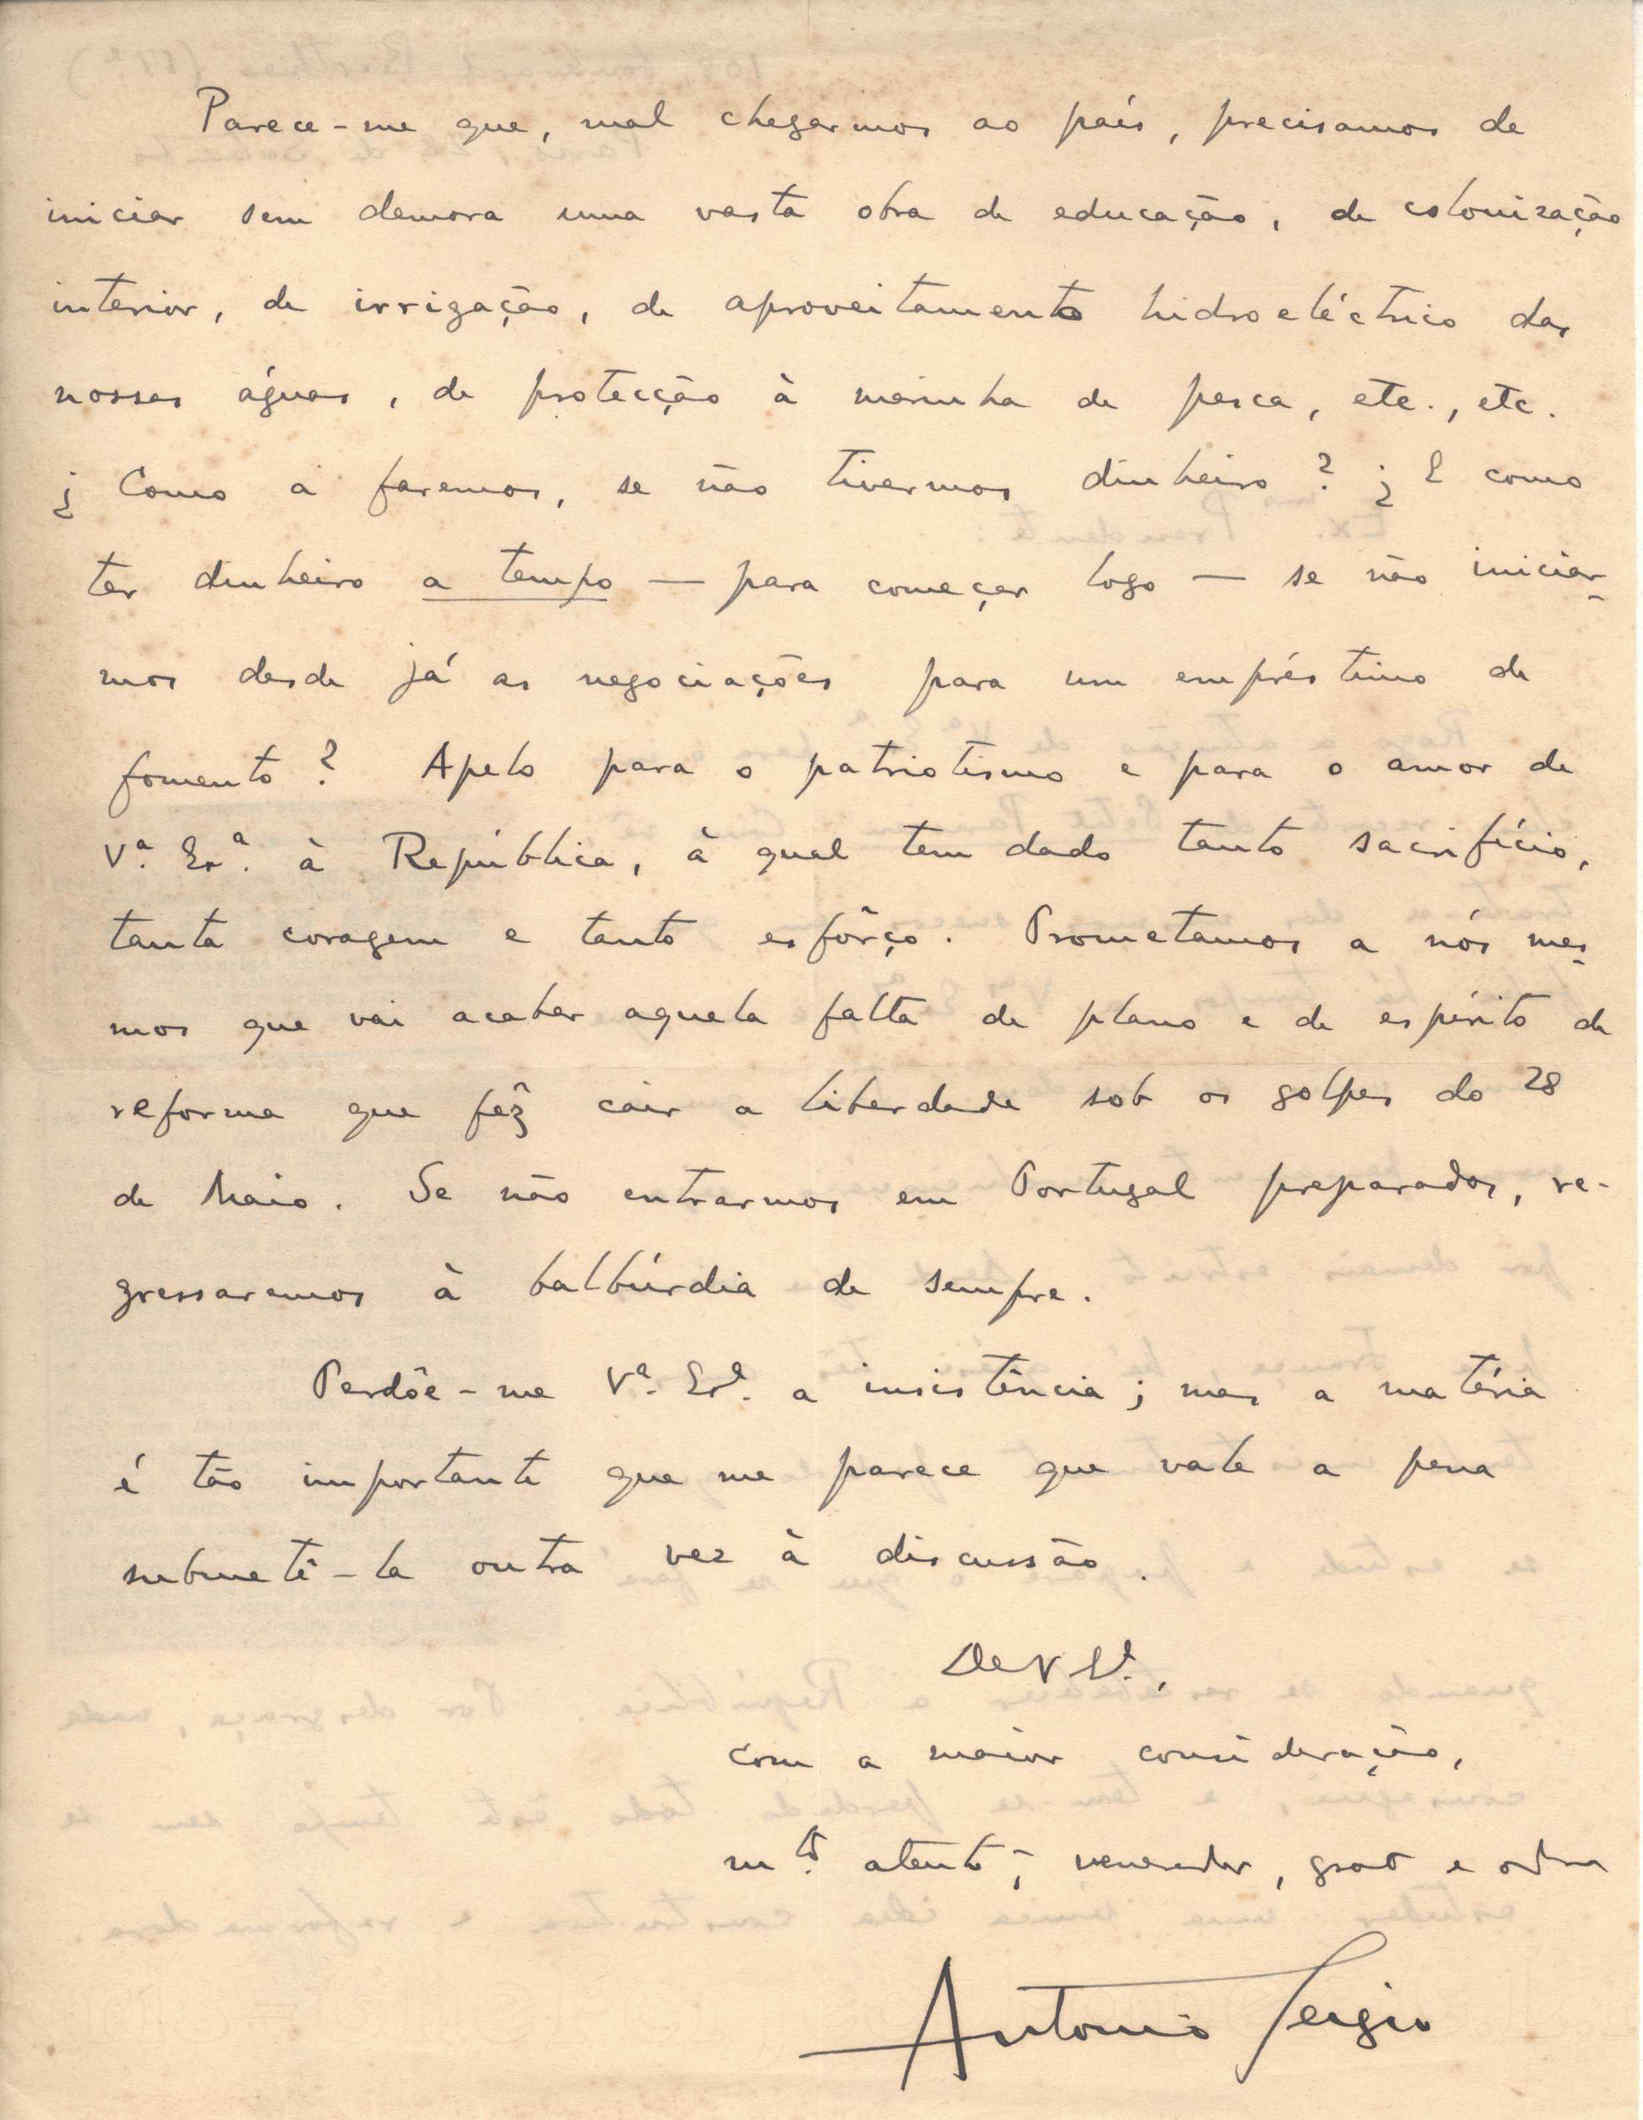 Parece-me que, mal chegarmos ao país, precisamos de
iniciar sem demora uma vasta obra de educação, de colonização
interior, de irrigação, de aproveitamento hidroeléctrico das
nossas águas, de protecção à marinha de pesca, etc., etc.
¿ Como a faremos, se não tivermos dinheiro? ¿ E como
ter dinheiro a tempo — para começar logo — se não iniciar-
mos desde já as negociações para um empréstimo de
fomento? Apelo para o patriotismo e para o amor de
Vª. Exª. à República, à qual tem dado tanto sacrifício,
tanta coragem e tanto esfôrço. Prometamos a nós mes-
mos que vai acabar aquela falta de plano e de espírito de
reforma que fêz cair a liberdade sob os golpes do 28
de Maio. Se não entrarmos em Portugal preparados, re-
gressaremos à balbúrdia de sempre.
Perdôe-me Vª. Exª. a insistência; mas a matéria
é tão importante que me parece que vale a pena
submetê-la outra vez à discussão.
De V Eª.,
com a maior consideração,
mtº. atento, venerador, grato e
Antonio Sergio